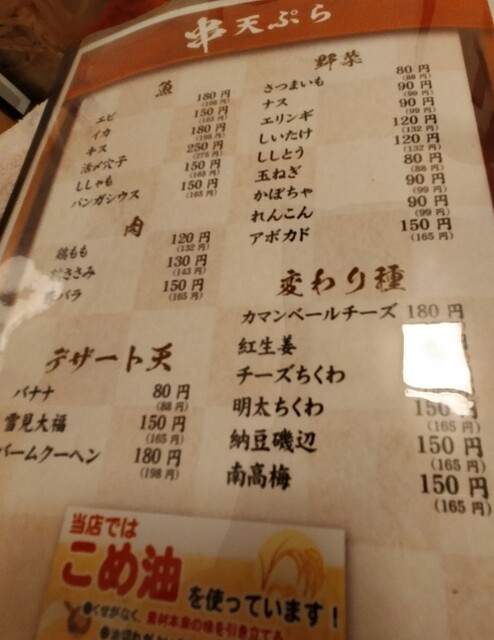 串天ぷら
魚
エビ 180円
(198円)
イカ 150円
(165円)
キス 180円
(198円)
活〆穴子 250円
(275円)
ししゃも 150円
(165円)
パンガシウス 150円
(165円)
肉
鶏もも 120円
(132円)
ささみ 130円
(143円)
バラ 150円
(165円)
デザート天
バナナ 80円
(88円)
雪見大福 150円
(165円)
バームクーヘン 180円
(198円)
野菜
さつまいも 80円
(88円)
ナス 90円
(99円)
エリンギ 90円
(99円)
しいたけ 120円
(132円)
ししとう 120円
(132円)
玉ねぎ 80円
(88円)
かぼちゃ 90円
(99円)
れんこん 90円
(99円)
アボカド 150円
(165円)
変わり種
カマンベールチーズ 180円
紅生姜
チーズちくわ
明太ちくわ 150円
(165円)
納豆磯辺 150円
(165円)
南高梅 150円
(165円)
当店では
こめ油を使っています！
●くせがなく、素材本来の味を引き立てる